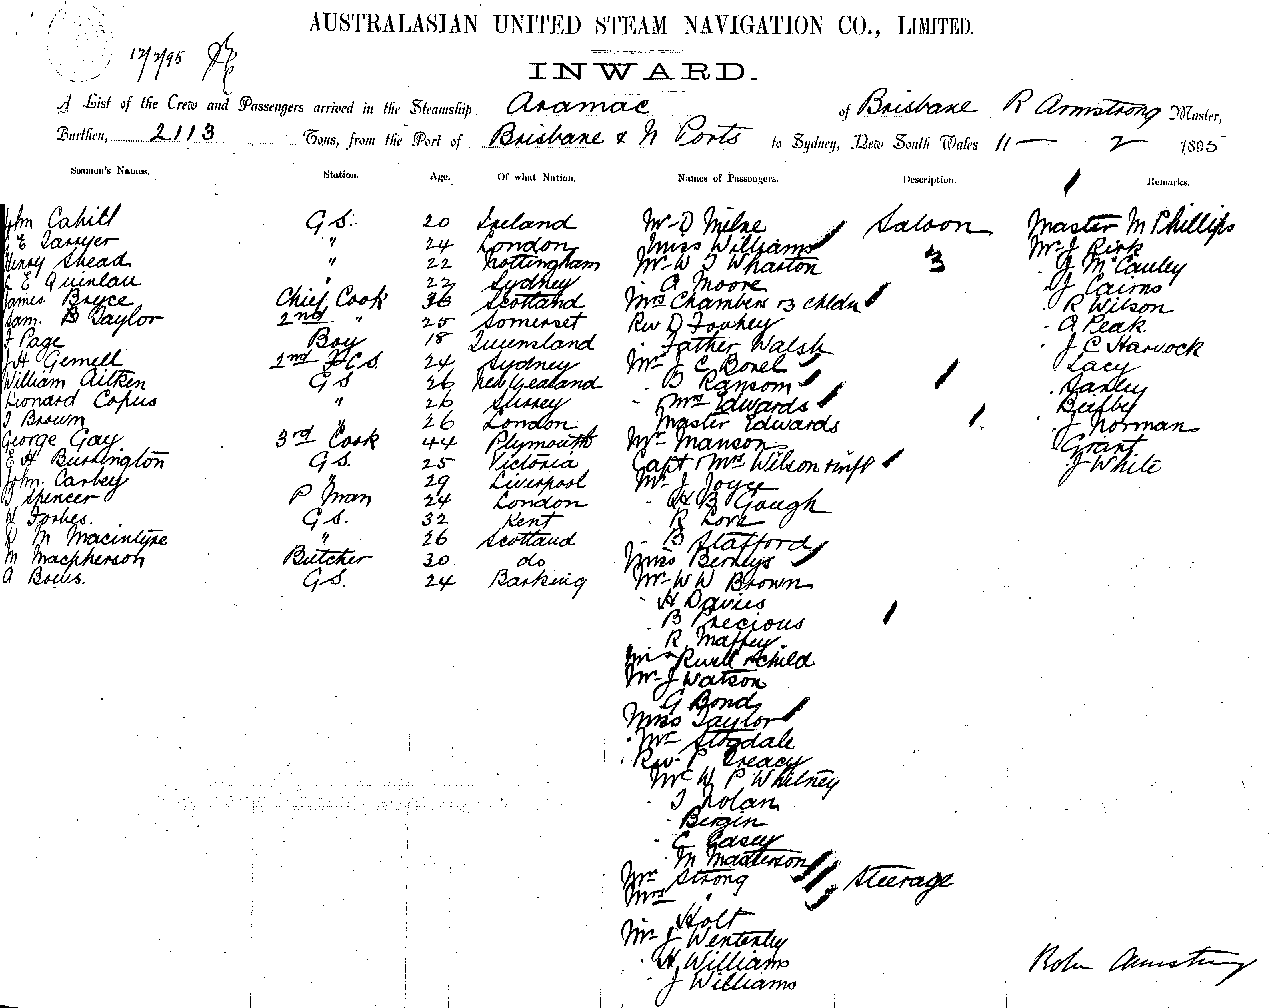 AUSTRALASIAN UNITED STEAM NAVIGATION CO., LIMITED.
12/2/95
INWARD.
A List of the Crew and Passengers arrived in the Steamship Aramac of Brisbane R Armstrong Master,
Burthen, 2113 Tons, from the Port of Brisbane & N Ports to Sydney, New South Wales 11 — 2 1895
Seamen's Names. Station. Age. Of what Nation. Names of Passengers. Description. Remarks.
John Cahill G.S. 20 Ireland Mr D Milne Saloon Master M Phillips
E Sawyer " 24 London Miss Williams Mr J Kirk
Henry Shead " 22 Nottingham Mr W J Wharton 3 J McCauley
E Quinlan " 22 Sydney A Moore J Cairns
James Bryce Chief Cook 36 Scotland Mrs Chambers & 3 chldn R Wilson
Sam. B Taylor 2nd " 25 Somerset Rev D Fouhey A Peak
F Page Boy 18 Queensland Father Walsh J C Harvock
J H Gemell 2nd F.C.S. 24 Sydney Mr J C Bonel Lacy
William Aitken G S 26 New Zealand B Ransom Sanley
Leonard Copus " 26 Surrey Mrs Edwards Bixby
J Brown " 26 London Master Edwards J Norman
George Gay 3rd Cook 44 Plymouth Mr Manson Grant
E H Bussington G.S. 25 Victoria Capt & Mrs Wilson & inft J White
John Carbey " 29 Liverpool Mr J Joyce
J Spencer P Man 24 London H B Gough
W Forbes. G.S. 32 Kent R Love
R M Macintyre " 26 Scotland B Stafford
M Macpherson Butcher 30 do Miss Berneys
A Bowis. G.S. 24 Barking Mr W W Brown
H Davies
B Precious
R Maffey
& child
Mr J Watson
G Bond
Miss Taylor
Mr Stogdale
Rev. P Treacy
Mr W P Whitney
J Nolan
Bergin
C Casey
M Masterson
Mr Strong Steerage
Mrs "
Holt
Mr J Wenterby
H Williams
J Williams
Robn Armstrong